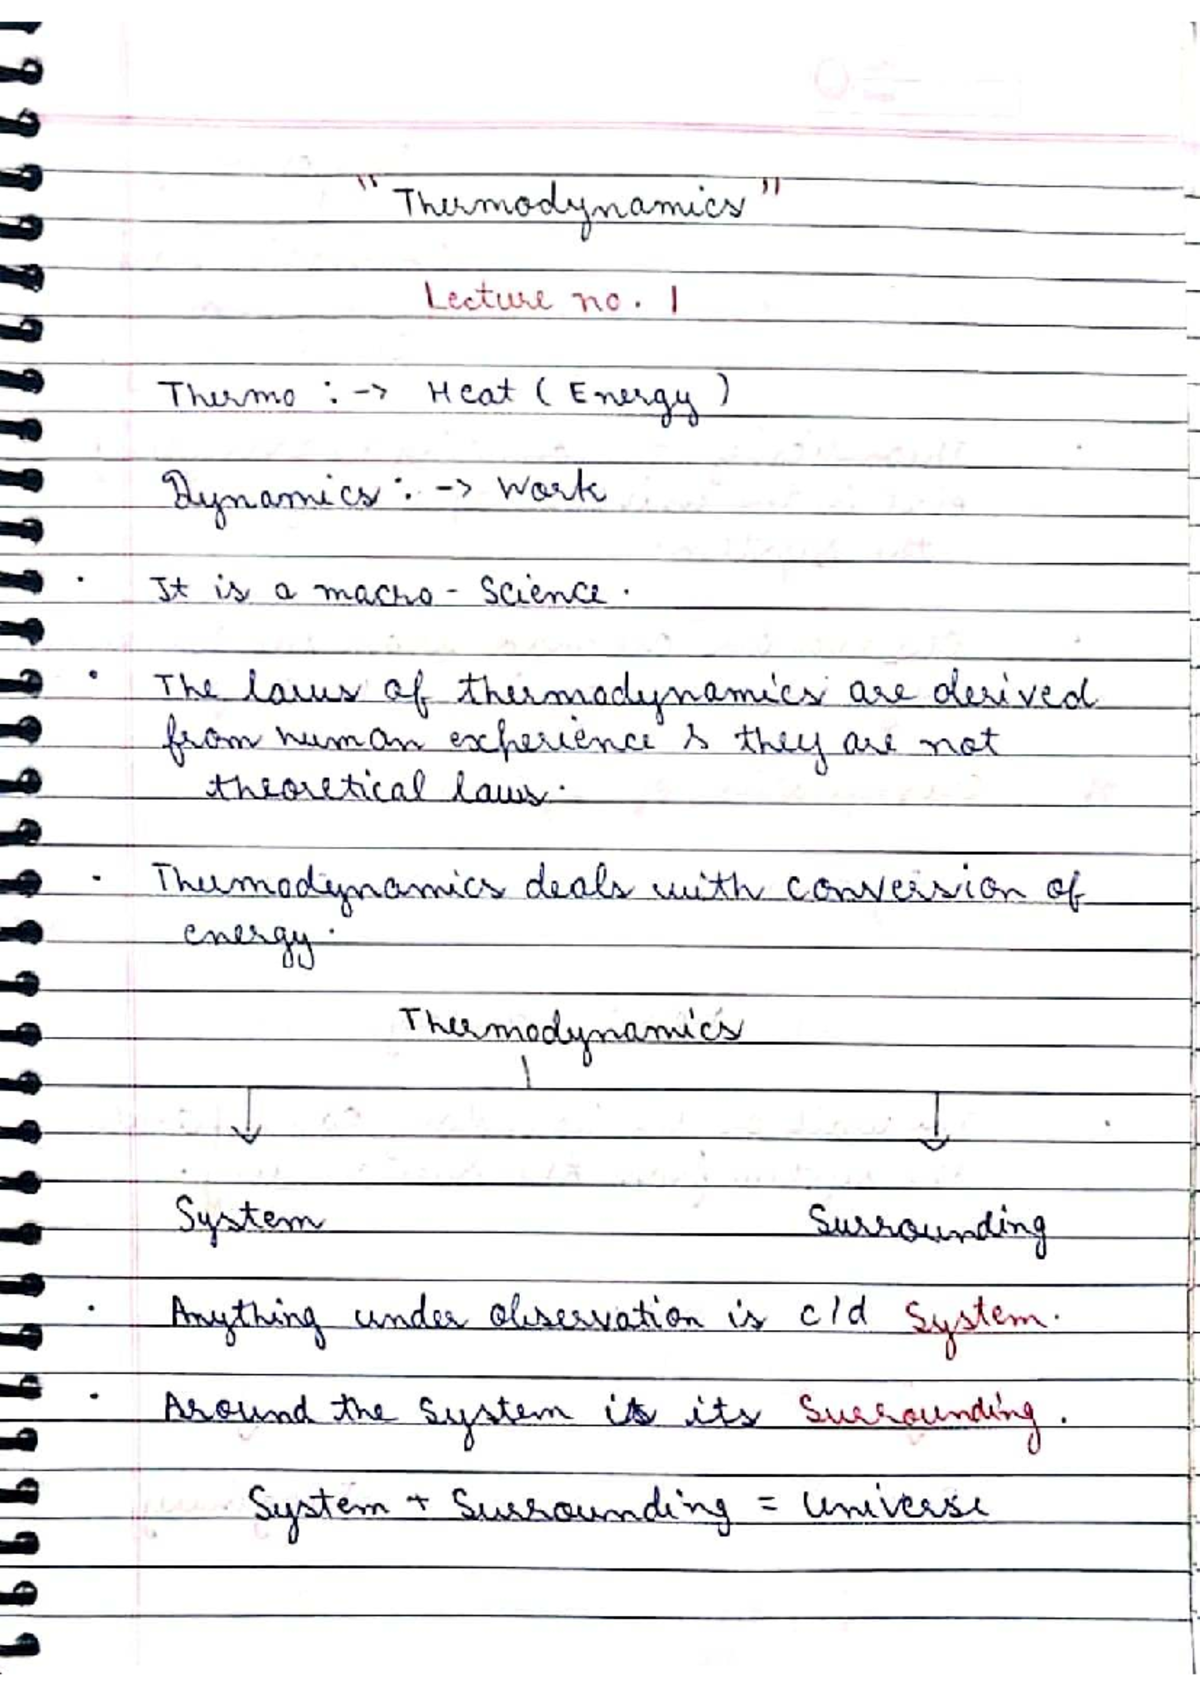 "Thermodynamics"
Lecture no. 1
Thermo :-> Heat (Energy)
Dynamics :-> Work
· It is a macro - Science.
· The laws of thermodynamics are derived
from human experience & they are not
theoretical laws.
· Thermodynamics deals with conversion of
energy.
Thermodynamics
System Surrounding
· Anything under observation is c/d System.
· Around the system is its Surrounding.
System + Surrounding = Universe